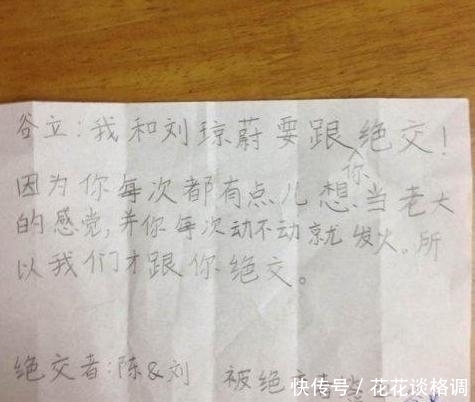 谷立:我和刘琼蔚要跟绝交!
你
因为你每次都有点儿想当老大
的感觉,并你每次动不动就发火。所
以我们才跟你绝交。
绝交者:陈&刘 被绝交者
快传号/花花谈格调